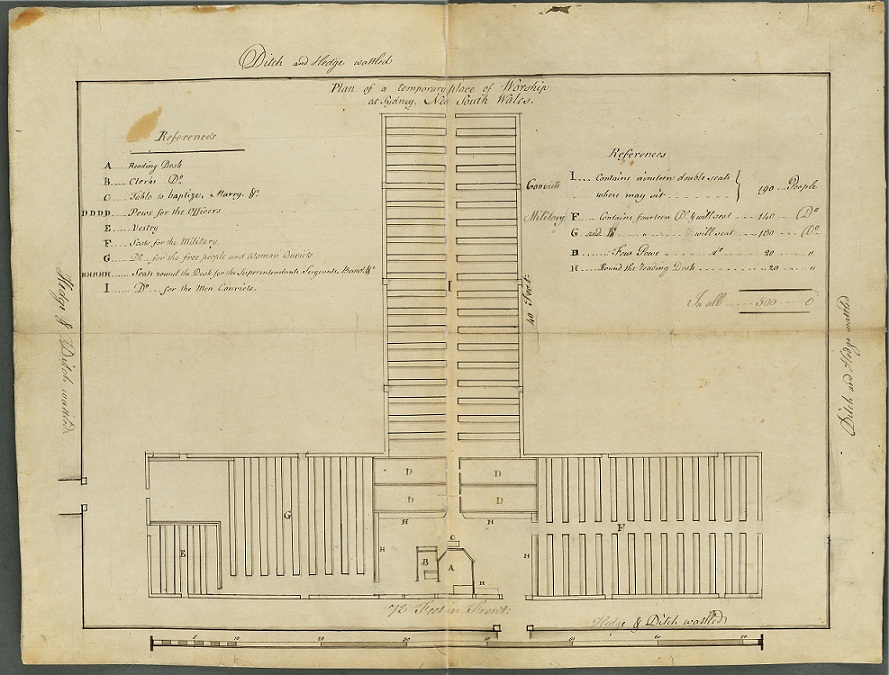 95
Ditch and Hedge wattled
Plan of a temporary place of Worship
at Sydney, New South Wales.
References
A ..... Reading Desk
B ..... Clerks Do
C ..... Table to baptize, Marry, &c
DDDD ..... Pews for the Officers
E ..... Vestry
F ..... Seats for the Military
G ..... Do for the free people and Woman Convicts
HHHHH ..... Seats round the Desk for the Superintendants, Sergeants, Band, &c
I ..... Do ... for the Men Convicts.
References
Convicts I .... Contains nineteen double seats
where may sit ........ 190 ... People
Military F .... Contains fourteen Do & will seat .... 140 .... Do
G and " " will seat ... 180 ... Do
Four Pews ..... do .... 20 .... "
H .... Round the reading Desk ........ 20 ... "
In all ..... 500 ... 0
Hedge & Ditch wattled.
Ditch and Hedge wattled
I
40 Feet:
D
D
D
D
G
F
E
H
H
H
H
C
B
A
H
72 Feet in Front:
Hedge & Ditch wattled
5
10
20
30
40
50
60
70